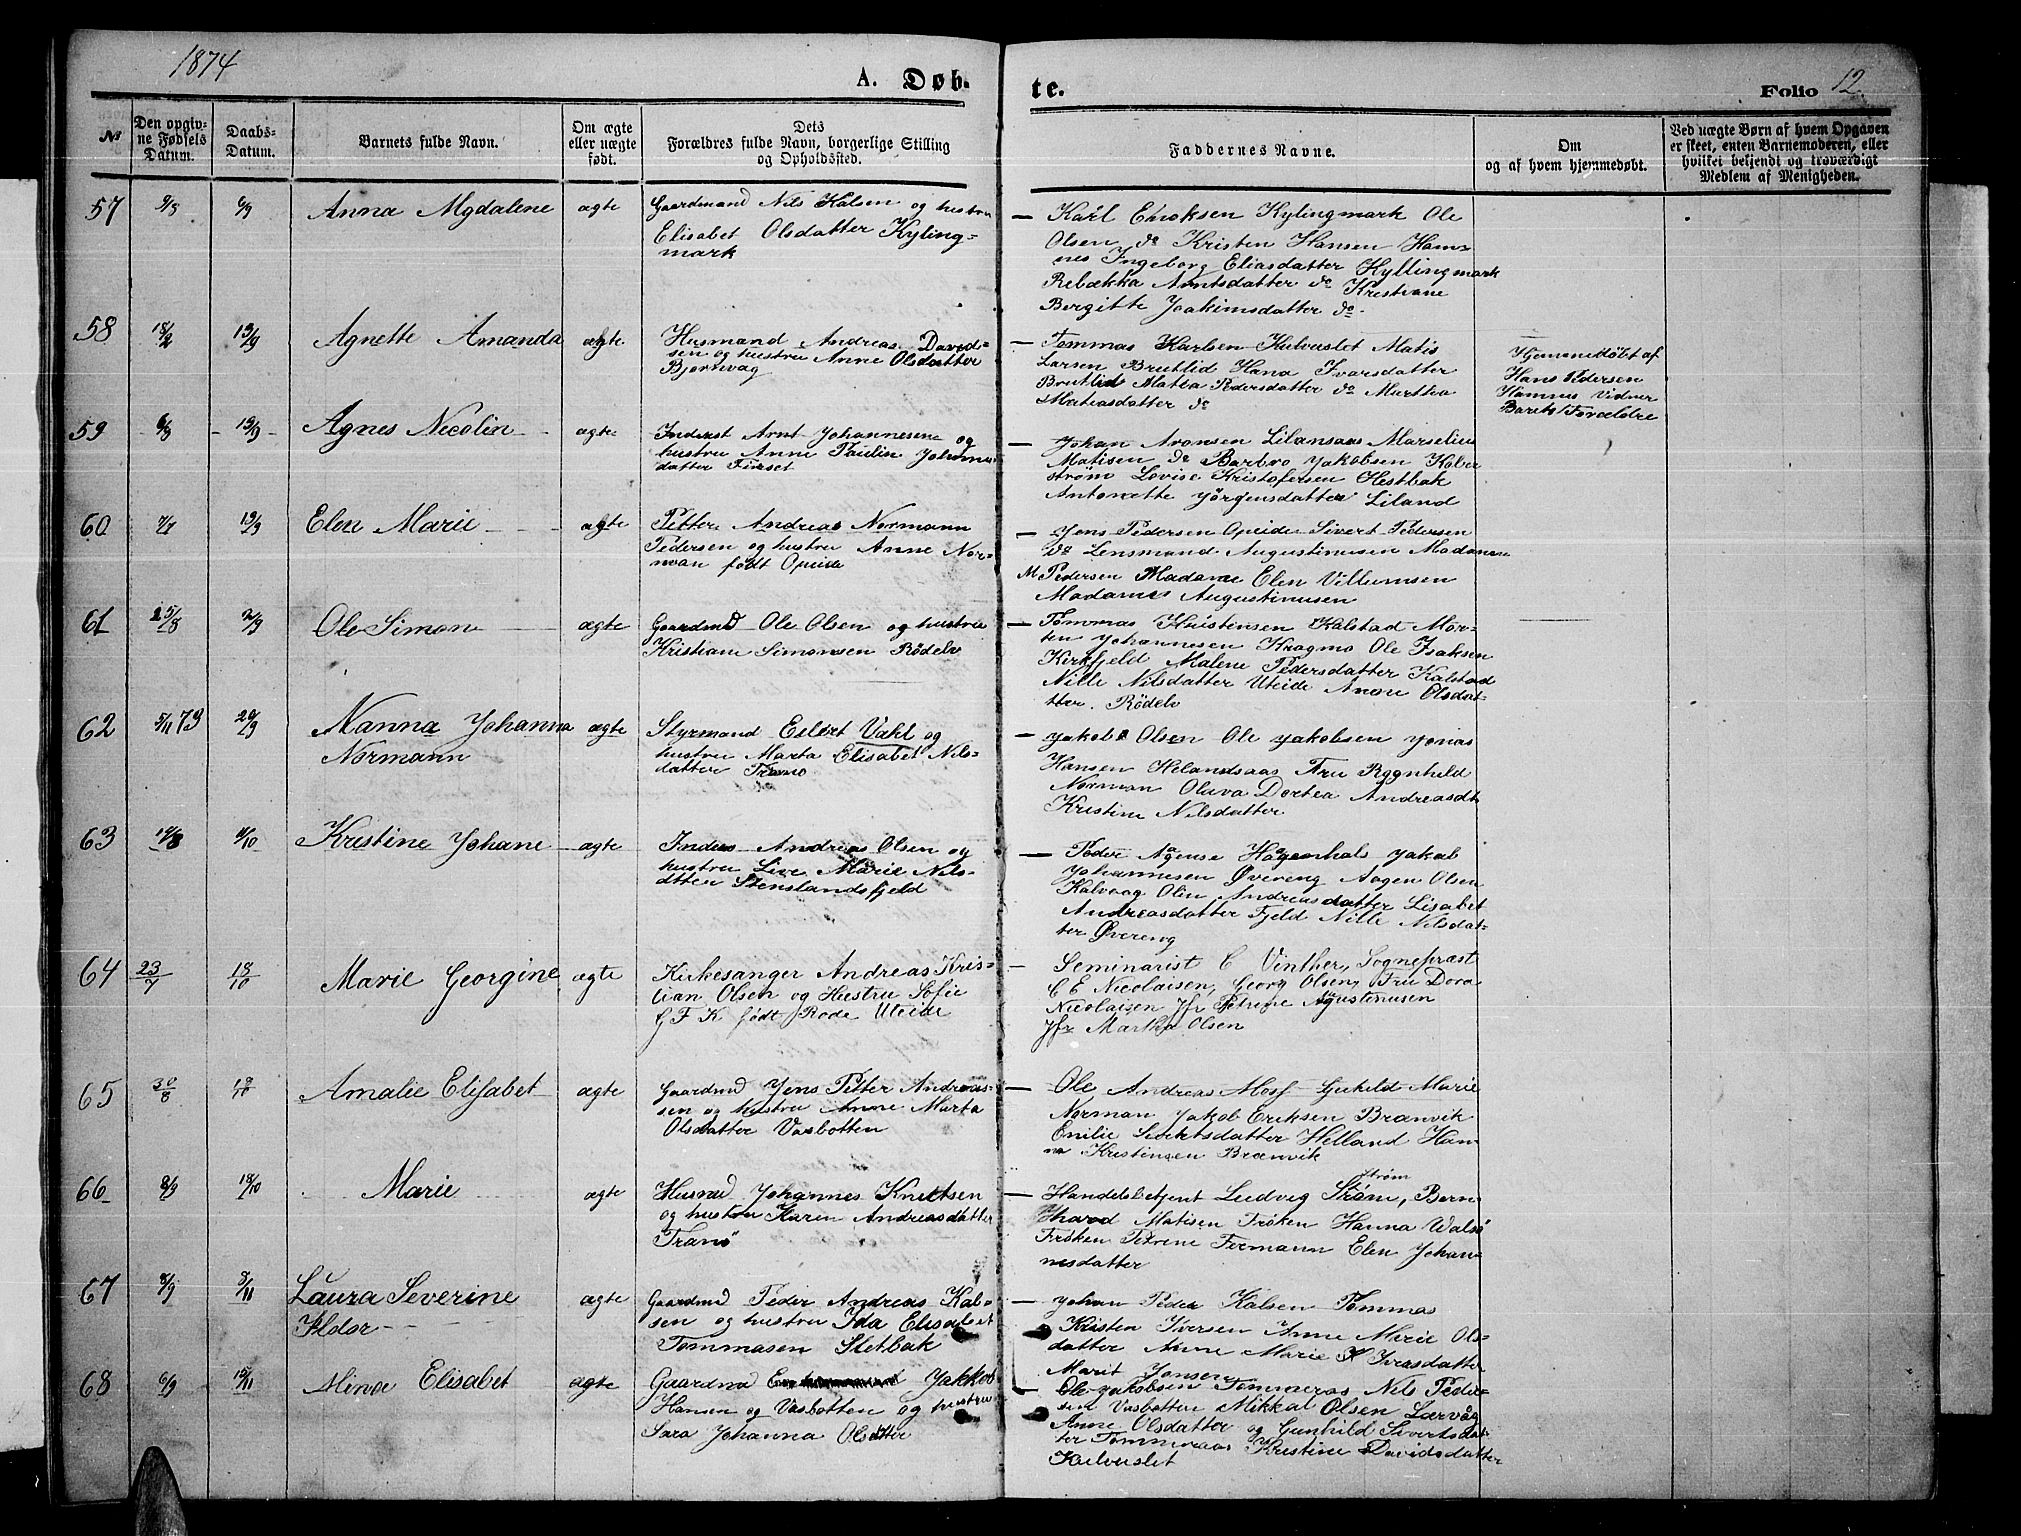 1874
A. Døb-
te.
Folio 12.
№
Den opgiv-
ne Fødsels
Datum.
Daabs-
Datum.
Barnets fulde Navn.
Om ægte
eller uægte
født.
Dets
Forældres fulde Navn, borgerlige Stilling
og Opholdssted.
Faddernes Navne.
Om
og af hvem hjemmedøbt.
Ved uægte Børn af hvem Opgaven
er skeet, enten Barnemoderen, eller
hvilket bekjendt og troværdigt
Medlem af Menigheden.
57
6/9
Anna Mgdalene
agte
Gaardmand Nils Kalsen og hustru
Elisabet Olsdatter Kyling-
mark
Karl Enoksen Kylingmark Ole
Olsen do Kristen Hansen Ham-
nes Ingeborg Eliasdatter Kyllingmark
Rebækka Arntsdatter do Kristiane
Bergitte Joakimsdatter do
58
18/2
13/9
Agnette Amanda
ægte
Husmand Andreas David-
sen og hustru Anne Olsdatter
Bjortevag
Tommas Karlsen Kulvuslet Matis
Larsen Brutlid Hana Ivarsdatter
Brutlid Matea Pedersdatter do Martha
Matiasdatter do
Hjemmedøbt af
Hans Pedersen
Hamnes Vidner
Barets Forældre
59
6/3
13/9
Agnes Nicolin
agte
Inderst Arnt Johannesen og
hustru Anne Paulin Johanns
datter Finset
Johan Aronsen Lilansaas Marselius
Matisen do Barbro Jakobsen Kober
strøm Lovise Kristofersen Hestbak
Antonette Jørgensdatter Liland
60
7/7
13/9
Elen Marie
agte
Petter Andreas Normann
Pedersen og hustru Anne Nor-
man født Opeide
Jens Pedersen Opeide Sivert Pedersen
do Lensmand Augustinusen Madame
M Pedersen Madame Elen Villumsen
Madames Augustinusen
61
25/8
Ole Simon
agte
Gaardmd Ole Olsen og hustru
Kristiane Simonsen Rödelv
Tommas Kristensen Kalstad Mor-
ten Johannesen Kragmo Ole Isaksen
Kirkfjeld Malene Pedersdatter Kalstad
Nille Nilsdatter Uteide Anne Olsdat-
ter. Rödelv
62
5/11 73
20/9
Nanna Johanna
Normann
ægte
Styrmand Eilert Vahl og
hustru Marta Elisabet Nils-
datter Tranö
Jakob Olsen Ole Jakobsen Jonas
Hansen Helandsaas Fru Ragnhild
Norman Oluva Dortea Andreasdt
Kristine Nilsdatter
63
11/10
Kristine Johane
agte
Inders Andreas Olsen og
hustru Live Marie Nils-
dtter Stenslandsfjeld
Peder Ågense Hågenhals Jakob
Johannesen Øvereng Aagen Olsen
Kalvaag Olin Andreasdatter Lisabet
Andreasdatter Fjeld Nille Nilsdat-
ter Øvereng
64
23/7
18/10
Marie Georgine
ægte
Kirkesanger Andreas Kris-
tian Olsen og Hustru Sofie
G F K født Rode Uteide
Seminarist C Vinther, Sognepræst
C E Nicolaisen, Georg Olsen, Fru Dora
Nicolaisen Jfr Petrine Agustinusen
Jfr Martha Olsen
65
30/8
18/10
Amalie Elisabet
agte
Gaardmd Jens Petter Andreas-
sen og hustru Anne Marta
Olsdatter Vasbotten
Ole Andreas Mosf Marie
Norman Jakob Eriksen Brænvik
Emilie Sivertsdatter Helland Han
na Kristensen Brænvik
66
8/9
18/10
Marie
agte
Husmd Johannes Knutsen
og hustru Karen Andreasdatter
Tranö
strøm
Handelsbetjent Ludvig Strøm, Bern
hard Matisen Frøken Hanna Walsö
Frøken Petrine Formann Elen Johan-
nesdatter
67
8/9
8/11
Laura Severine
Haldor
agte
Gaardmd Peder Andreas Kal-
sen og hustru Ida Elisabet
Tommasen Sletbak
Johan Peder Kalsen Tommas
Kristen Iversen Anne Marie Ols-
datter Anne Marie K Ivarsdatter
Marit Jonsen
68
6/9
15/11
Mina Elisabet
agte
Gaardmd Jakkob
Hansen og Vasbotten og hustru
Sara Johanna Olsdtter
Ole Jakobsen Tommeraas Nils Peder-
sen Vasbotten Mikkal Olsen Lærvåg
Anne Olsdatter og Gunhild Sivertsdat
ter Tommeraas Kristine Davidsdatter
Kulvuslet